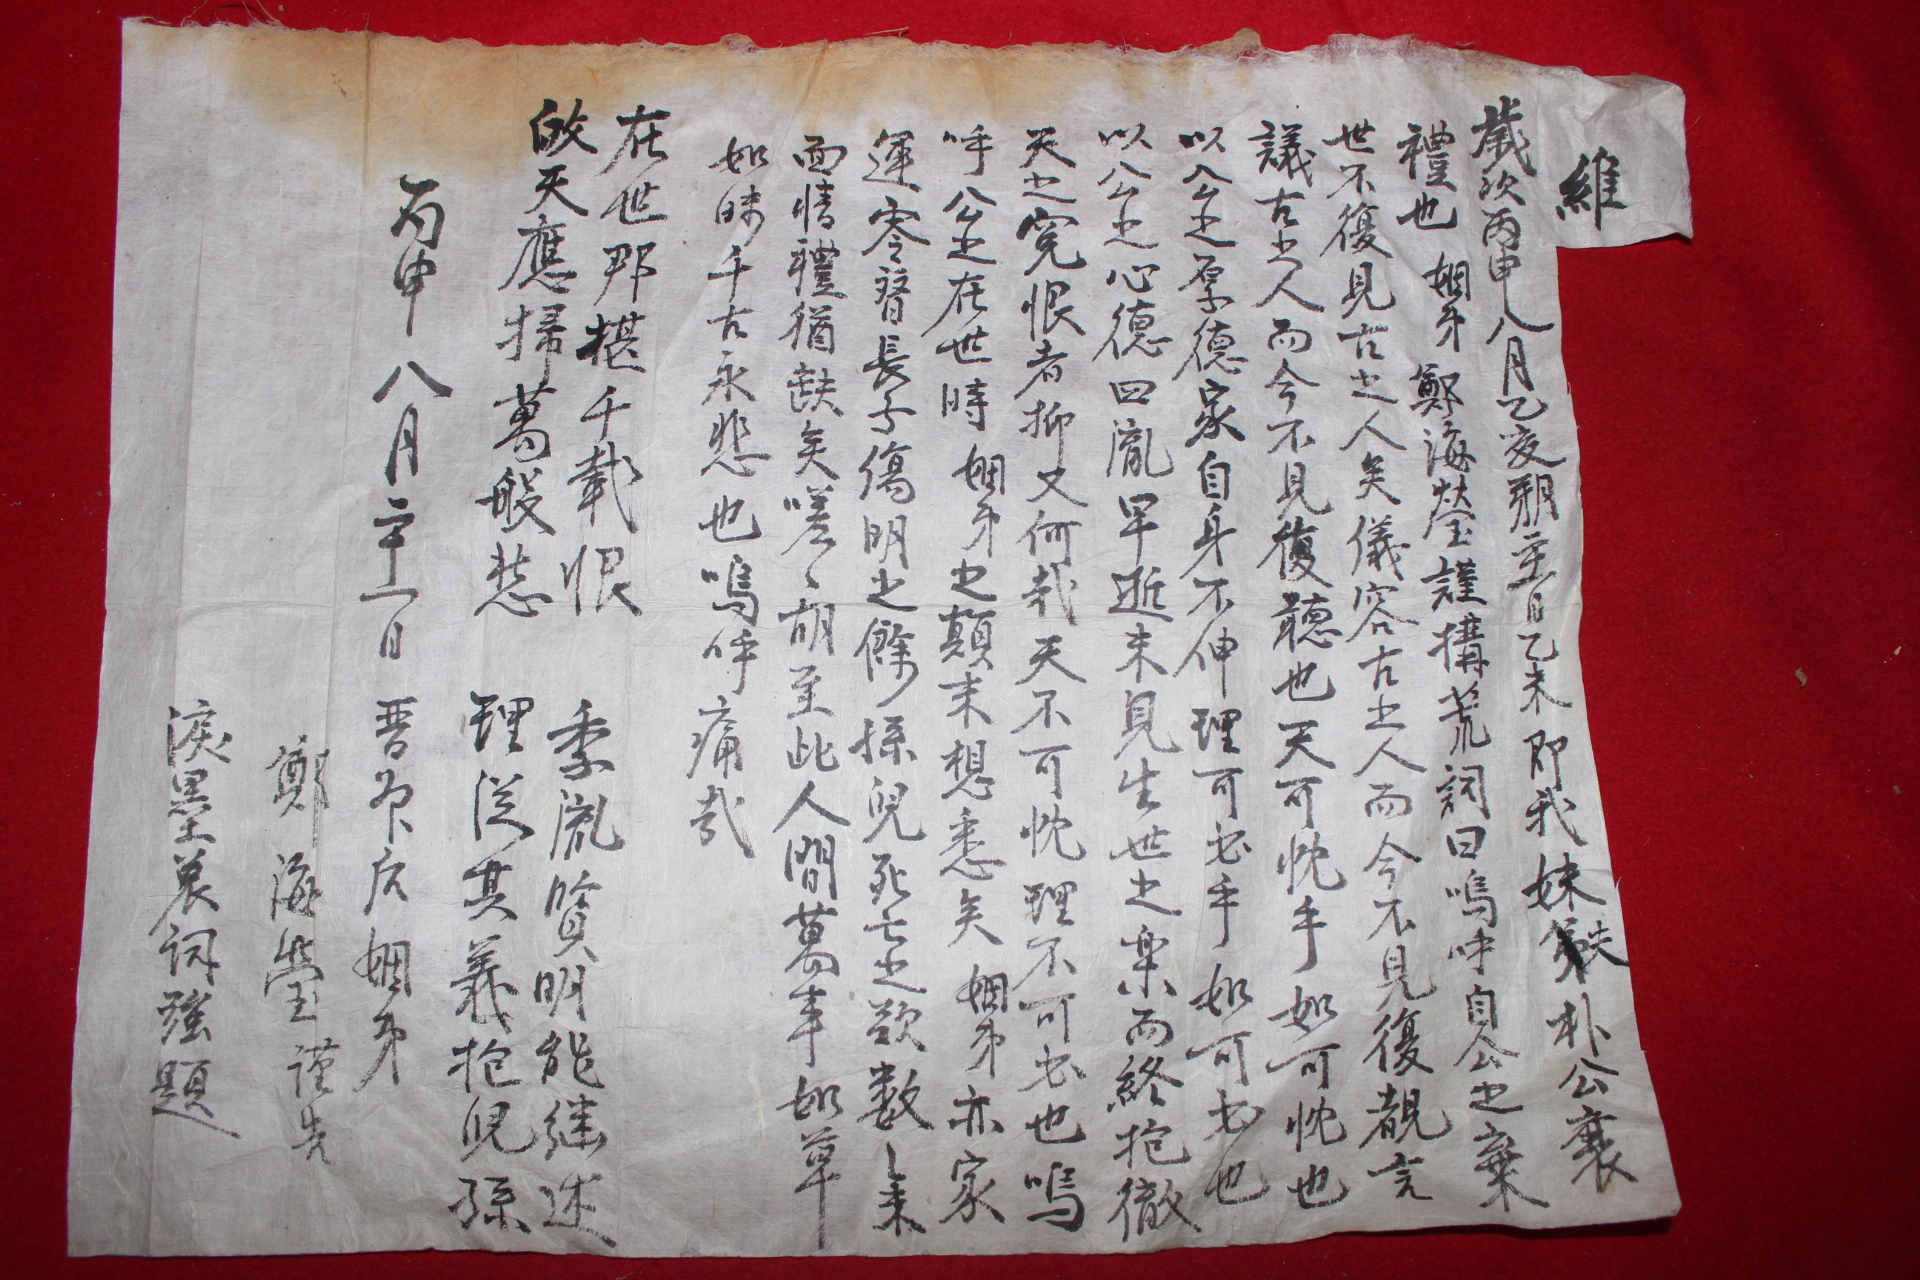 維
歲次丙申八月乙亥朔二十一日乙未即我妹夫朴公襄
禮也 姻弟 鄭海瑩謹搆荒詞曰嗚呼自公之棄
世不復見古之人矣儀容古之人而今不見復覩言
議古之人而今不見復聽也天可忱乎如可忱也
以公之厚德家自身不伸理可必乎如可必也
以公之心德四胤早逝未見生世之樂而終抱徹
天之寃恨者抑又何哉天不可忱理不可必也嗚
呼公之在世時 姻弟之顛末想悉矣 姻弟亦家
運零替長子傷明之餘孫兒死亡之歎數
面情禮猶缺矣嗟〻胡至此人間萬事如草
如昧千古永悲也嗚呼痛哉
在世那堪千載恨 季胤贒明能継述
啟天應掃萬般愁 理從其義抱兒孫
丙申八月二十一日 晋陽后姻弟
鄭海瑩謹告
淚墨哀詞強題